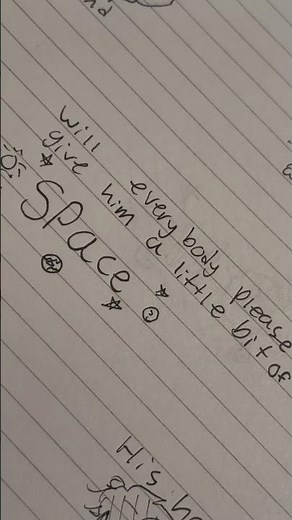 nd
will everybody please
give him a little bit of
Space
His h